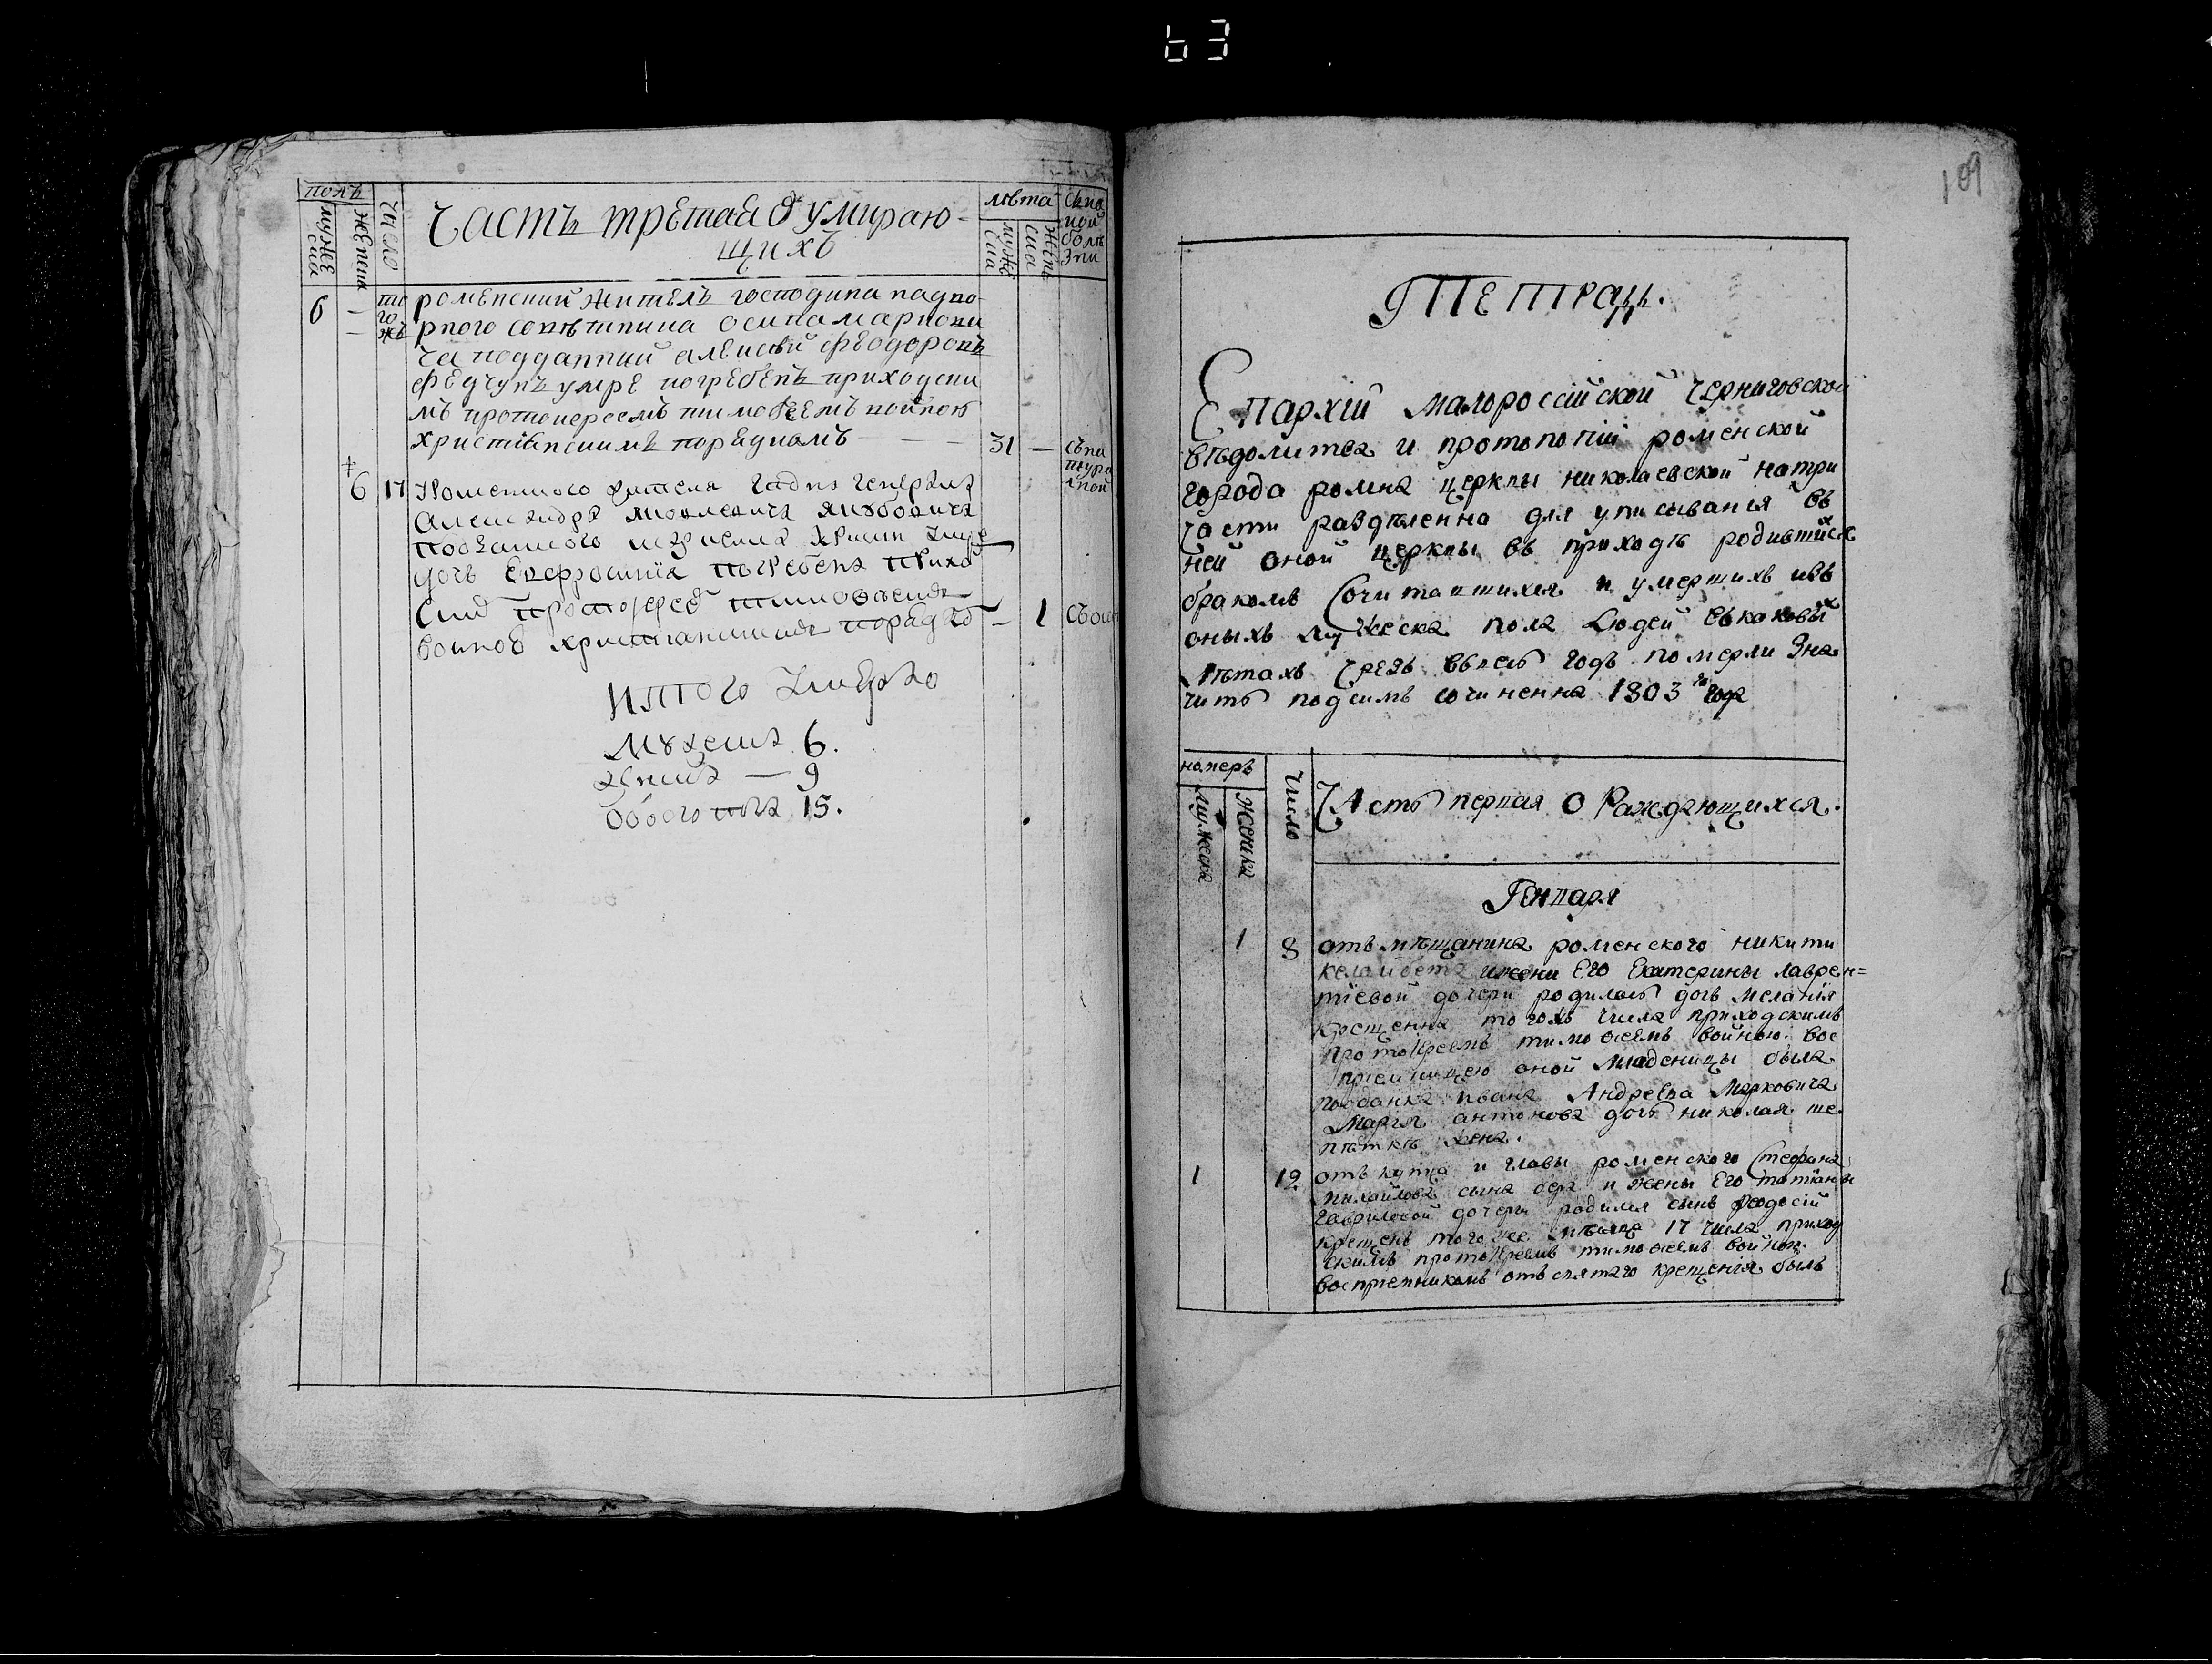 63
полъ
мужеска
женскии
число
Часть третая о умираю-
щихъ
лѣта
мужеска
женска
6 — того жъ роменский житель господина надво-
рного совѣтника осипа маркови
ча подданний алеѯѣй феодоровъ
федчунъ умре погребенъ приходски
мъ протоиереемъ тимофеемъ войною
християнскимъ порядкомъ — — 31 —
6 17 Роменского жителя
Александра Яковлевича Якубовича
подданного
дочь Евфросинія погребена прихо
ским протоиерео тимофеемъ
воиною християнскимъ порядко — 1
Итого умерло
Мужеска 6.
женска — 9
обоего пола 15.
109
Тетрадь.
Епархіи малороссійской черниговской
вѣдомства и протопопіи роменской
города ромна церкви николаевской на три
части раздѣленна для уписыванія въ
ней оной церкви въ приходѣ родившихся
бракомъ сочитавшихся и умершихъ изъ
оныхъ мужеска пола людей въ каковыхъ
лѣтахъ чрезъ весь годъ померли зна
чить подсимъ сочиненна 1803го года
номеръ
мужеска
женска
Число
Часть первая о Раждающихся.
Генваря
1 8 отъ мѣщанина роменского никити
и жени Его Екатерины лаврен=
тіевой дочери родилась дочь меланія
крещенна тогожъ числа приходскимъ
протоіереемъ тимофеемъ войною. вос
пріемницею оной младеницы была
подданка ивана Андреева Марковича
Марія антонова дочь николая ше
жена.
1 12 отъ купца и главы роменского Стефана
михайлова сына и жены Его татіаны
гавриловой дочери родился сынъ Феодосій
крещенъ того же мѣсяца 17 числа приход
скимъ протоіереемъ тимофеемъ войною.
воспріемникомъ отъ святаго крещенія былъ